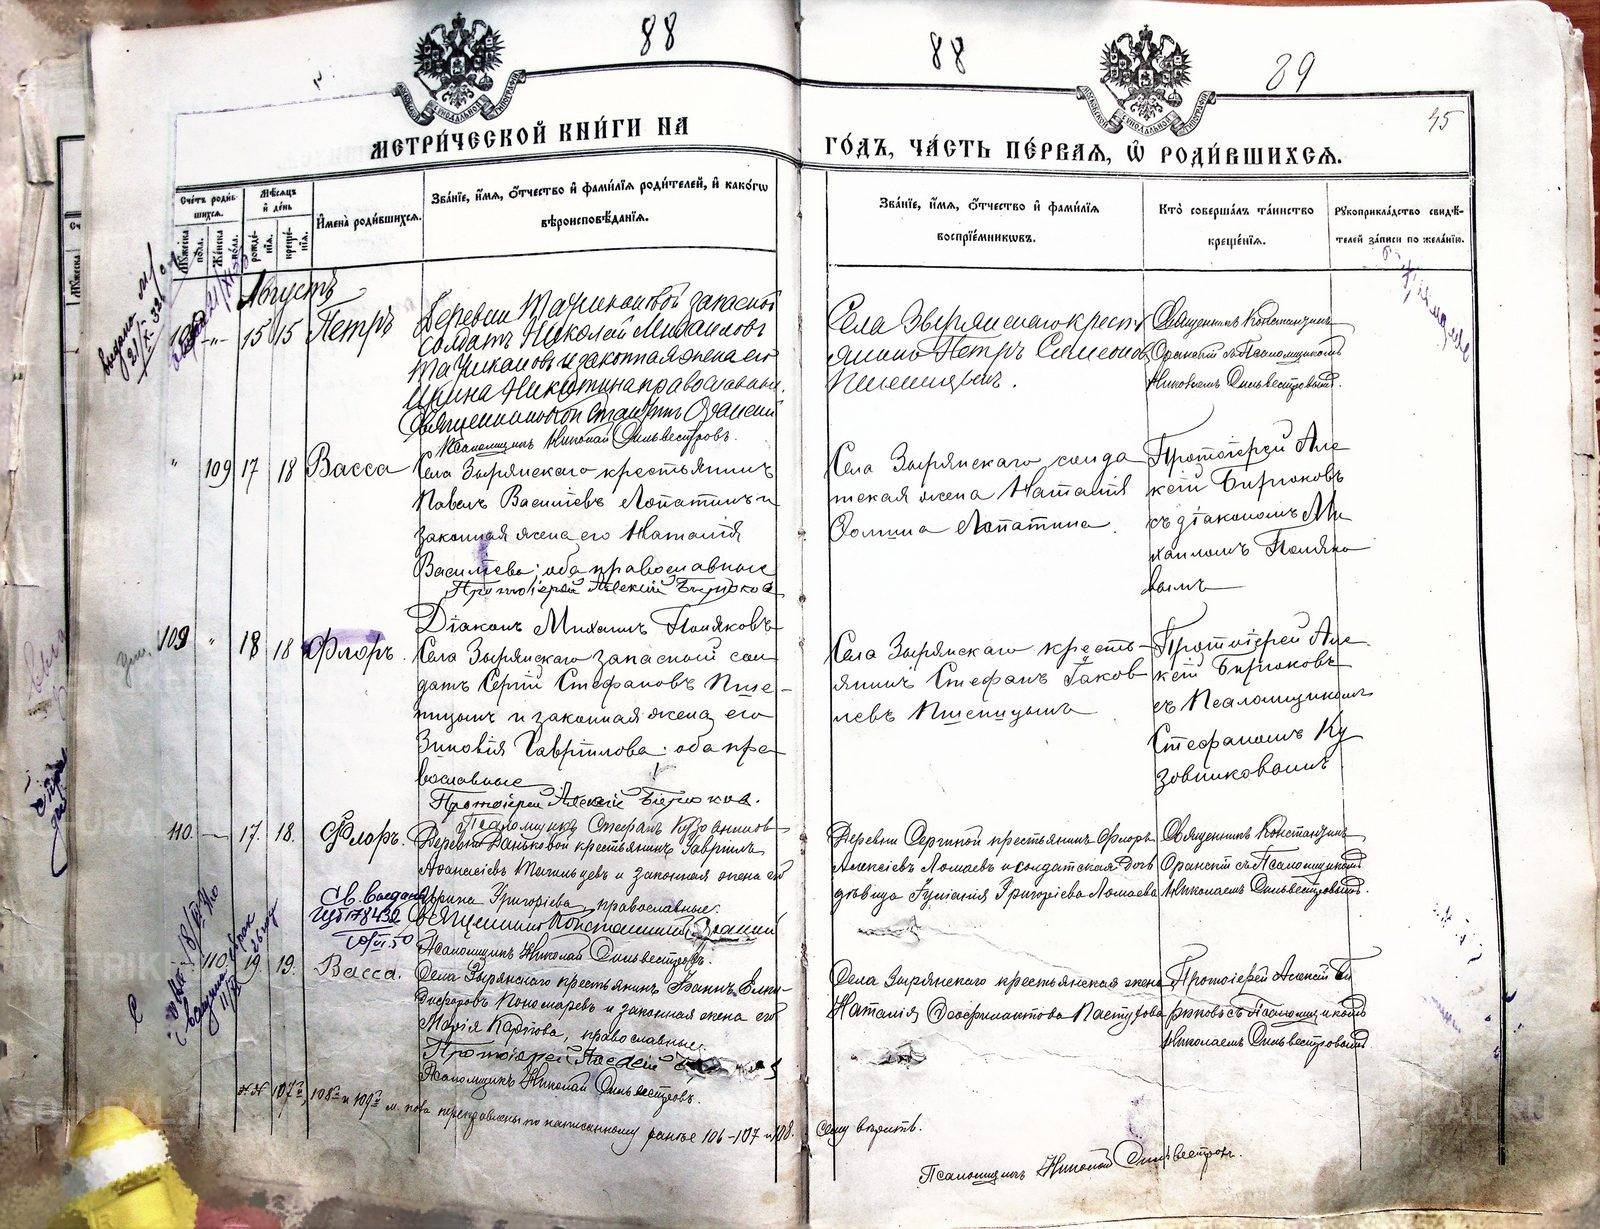 88
88
89
45
МЕТРИ́ЧЕСКОЙ КНИ́ГИ НА
ГО́ДЪ, ЧА́СТЬ ПЕ́РВАЯ, Ѡ҆ РОДИ́ВШИХСѦ.
Сче́тъ роди́в-
шихсѧ.
Мѣ́сѧцъ
и҆ де́нь
И҆мена̀ роди́вшихсѧ.
Зва́нїе, и҆́мѧ, ѻ҆́тчество и҆ фами́лїѧ роди́телей, и҆ како́гѡ
вѣроисповѣ́данїѧ.
Зва́нїе, и҆́мѧ, ѻ҆́тчество и҆ фами́лїѧ
воспрїе́мникѡвъ.
Кто̀ соверша́лъ та́инство
креще́нїѧ.
Рꙋкоприкла́дство свидѣ́-
телей за́писи по жела́нїю.
Мꙋ́жеска
по́ла.
Же́нска
по́ла.
рожде́-
нїѧ.
креще́-
нїѧ.
Августъ
15 15 Петръ
запасной
солдатъ Николай Михаиловъ
и законная жена его
Ирина Никитина православные.
Псаломщикъ Николай Сильвестровъ.
Села Зырянскаго кресть
янинъ Петръ Симеоновъ
Пшеницынъ.
Священникъ Константинъ
Оранскій съ Псаломщикомъ
Николаемъ Сильвестровымъ.
" 109 17 18 Васса
Села Зырянскаго крестьянинъ
Павелъ Василіевъ Лопатинъ и
законная жена его Наталія
Василіева; оба православные
Протоіерей Алексій Бирюковъ
Діаконъ Михаилъ Поляковъ
Села Зырянскаго солда
тская жена Наталія
Лопатина
Протоіерей Але
ксій Бирюковъ
съ діакономъ Ми
хаиломъ Поляко
вымъ
109 " 18 18 Флоръ.
Села Зырянскаго запасный сол
датъ Сергій Стефановъ Пше-
ницынъ и законная жена его
Зиновія Гавріилова: оба пра
вославные
Протоіерей Алексій Бирюковъ.
Псаломщикъ Стефанъ
Села Зырянскаго кресть-
янинъ Стефанъ Іаков
левъ Пшеницынъ
Протоіерей Але
ксій Бирюковъ
съ Псаломщикомъ
Стефаномъ Ку
зовниковымъ
110. — 17. 18. Флоръ.
Деревни Даньковой крестьянинъ Гавріилъ
и законная жена его
Ирина Григоріева, православные.
Священникъ Константинъ Оранскій
Псаломщикъ Николай Сильвестровъ.
Деревни Сергиной крестьянинъ Флоръ
Алексіевъ Ломаевъ и солдатская дочь
дѣвица Іуліанія Григоріева Ломаева
Священникъ Константинъ
Оранскій съ Псаломщикомъ
Николаемъ Сильвестровымъ.
110 19 19. Васса.
Села Зырянскаго крестьянинъ Іоаннъ Елпи-
дифоровъ Пономаревъ и законная жена его
Марія Карпова, православные.
Протоіерей Алексій
Псаломщикъ Николай Сильвестровъ.
Села Зырянскаго крестьянская жена
Наталія Ѳеофилактова Пастухова
Протоіерей Алексій Би
рюковъ съ Псаломщикомъ
Николаемъ Сильвестровымъ
№№ 107й, 108й и 109й м. пола переправлены по написанному ранѣе 106-107 и 108.
сему вѣрить.
Псаломщикъ Николай Сильвестровъ.